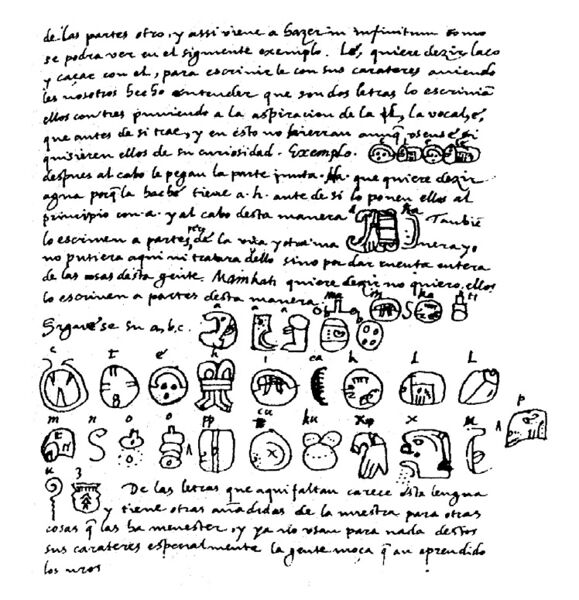 de las partes otro, y assi viene a hazer in infinitum como
se podra ver en el siguiente exemplo. Lé, quiere dezir laço
y caçar con el, para escrivirle con sus carateres aviendo
les nosotros hecho entender que son dos letras lo escrivian
ellos con tres puniendo a la aspiracion de la l, la vocal, é,
que antes de si trae, y en esto no hierran aunq̃ usense si
quisieren ellos de su curiosidad. Exemplo.
despues al cabo le pegan la parte junta. Ha. que quiere dezir
agua porq̃ la haché tiene a. h. ante de si lo ponen ellos al
principio con a. y al cabo desta manera a ha Tambiẽ
lo escriven a partes, de la una y otra ma nera yo
no pusiera aqui ni tratara dello sino por dar cuenta entera
de las cosas desta gente. Mainkati quiere dezir no quiero, ellos
lo escriven a partes desta manera ma i n ka ti
Siguese su a, b, c. a a a b b
c t é h i ca k l L
m n o o pp cu ku x x u p
u z De las letras que aqui faltan carece esta lengua
y tiene otras añadidas de la nuestra para otras
cosas q̃ las ha menester, y ya no usan para nada destos
sus carateres especialmente la gente moça q̃ an aprendido
los nros